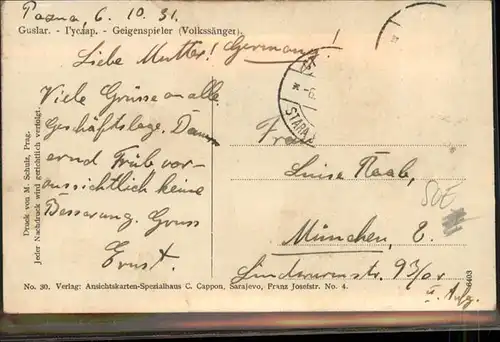 6. 10. 31.
Guslar. - Гуслар. - Geigenspieler (Volkssänger).
Liebe Mutter! (Germany!)
Viele Grüsse an alle.
Geschäftslage. Dauern
ernd Trüb vor-
aussichtlich keine
Besserung. Gruss
Ernst.
STARA
Frau
Luise Raab,
München, 8.
Lindwurmstr. 93/or
II. Aufg.
50E
Druck von M. Schulz, Prag.
Jeder Nachdruck wird gerichtlich verfolgt.
No. 30. Verlag: Ansichtskarten-Spezialhaus C. Cappon, Sarajevo, Franz Josefstr. No. 4.
6403